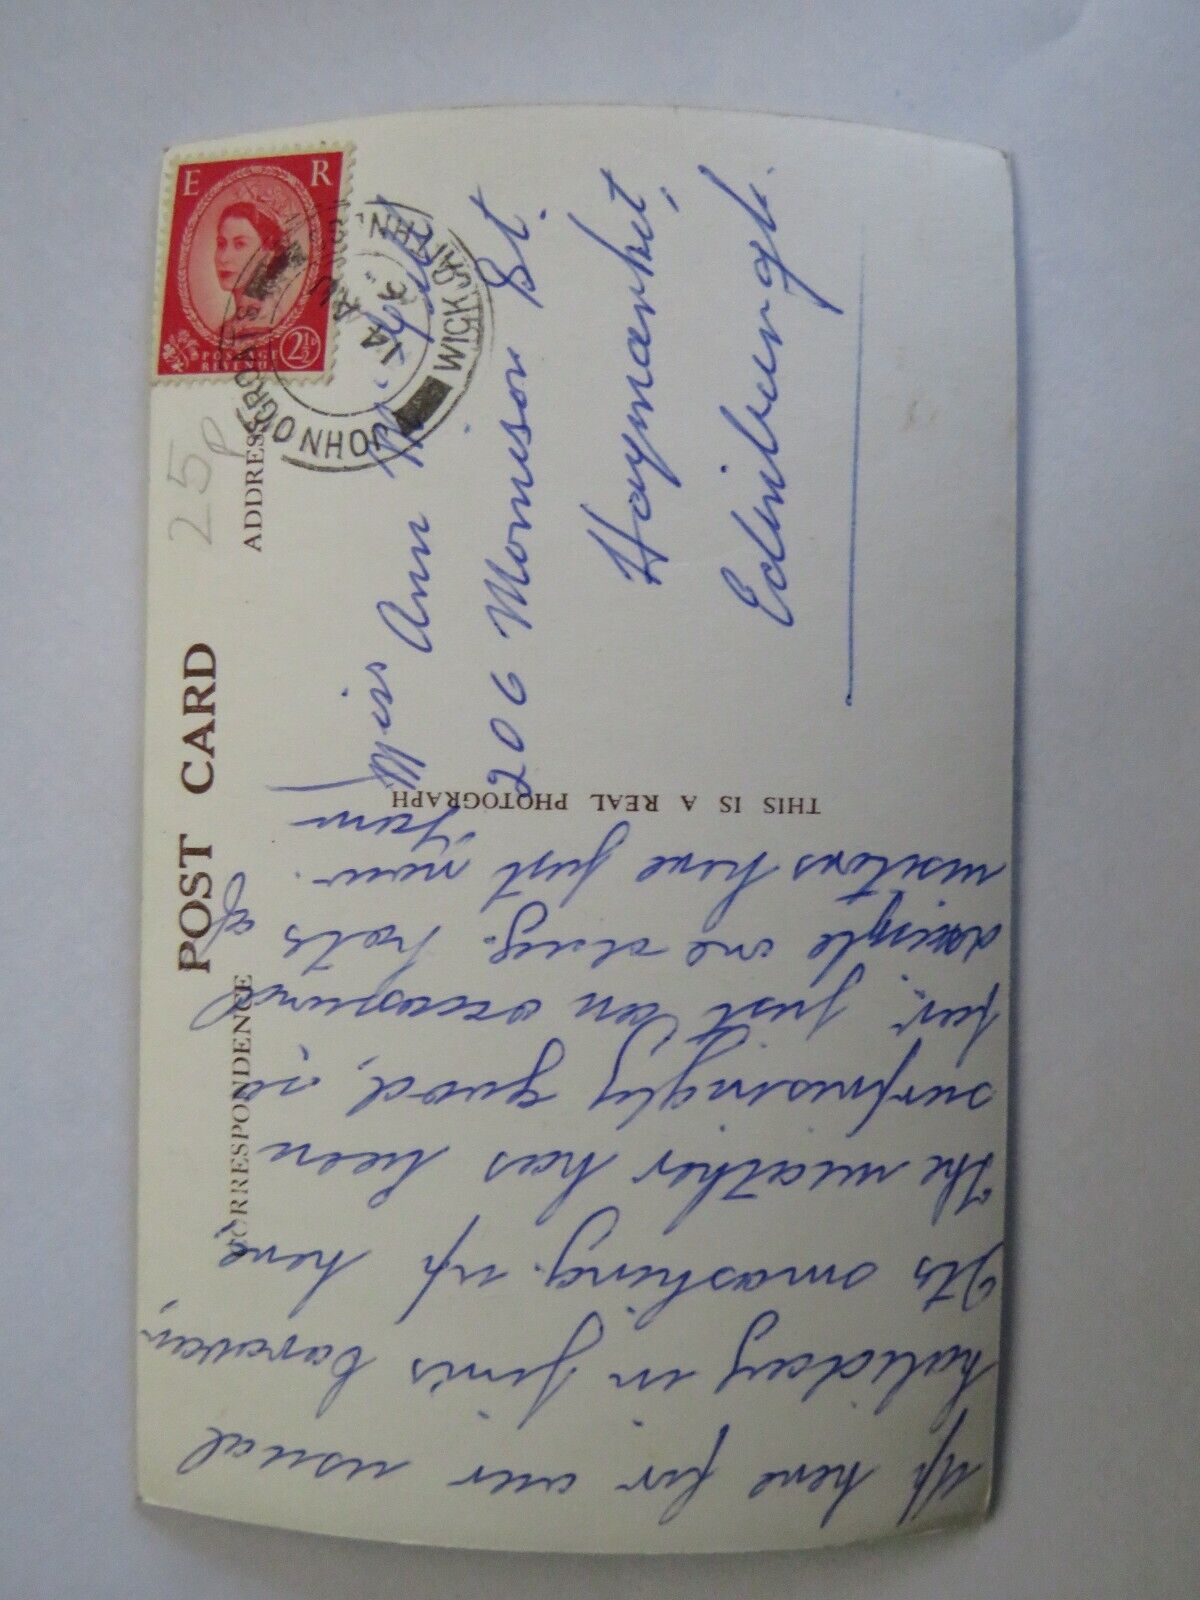 POST CARD
CORRESPONDENCE
ADDRESS
THIS IS A REAL PHOTOGRAPH
E R
POSTAGE
REVENUE
2½D
JOHN O'GROATS
WICK CAITHN.
14
25p
Up here for our usual
holiday in Jim's caravan,
Its smashing up here,
The weather has been
surprisingly good, so
far, just an occasional
drizzle one day. Lots of
visitors here just now.
Miss Ann
206 Morrison St.
Haymarket,
Edinburgh.